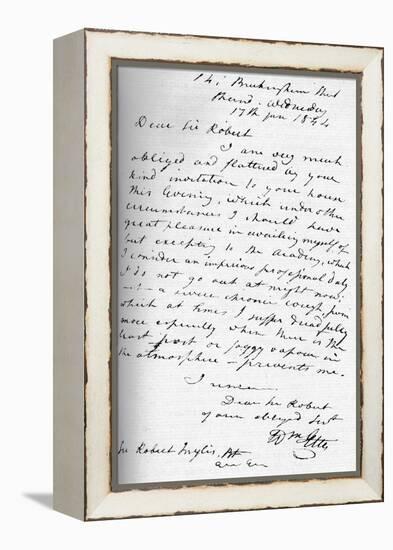 14, Buckingham Street
Strand, Wednesday
17th Jan 1844
Dear Sir Robert
I am very much
obliged and flattered by your
kind invitation to your house
this Evening, which under other
circumstances I should have
great pleasure in availing myself of
but excepting to the Academy, which
I consider an imperious professional duty
I do not go out at night now:
a severe chronic cough, from
which at times I suffer dreadfully
more especially when there is the
least frost or foggy vapour in
the atmosphere – prevents me.
I remain
Dear Sir Robert
your obliged Servt
Wm Etty
Sir Robert Inglis, Bt